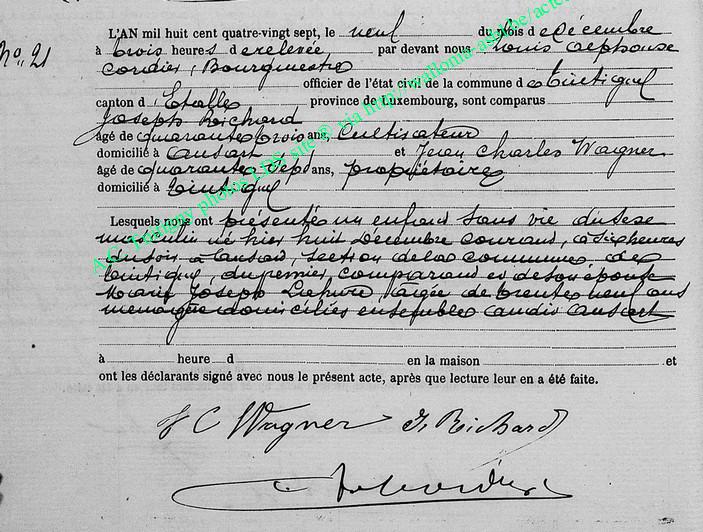 No. 21
L'AN mil huit cent quatre-vingt sept, le neuf du mois de Décembre
à trois heures de relevée par devant nous Louis Alphonse
Cordier, Bourgmestre
officier de l'état civil de la commune de Tintigny
canton d'Etalle province de Luxembourg, sont comparus
Joseph Richard
âgé de quarante trois ans, Cultivateur
domicilié à Ansart et Jean Charles Wagner
âgé de quarante sept ans, propriétaire
domicilié à Tintigny
Lesquels nous ont présenté un enfant sans vie du sexe
masculin né hier huit Décembre courant, à six heures
du soir à Ansart, section de la commune de
Tintigny, du premier comparant et de son épouse
Marie Joseph Lefevre, âgée de trente neuf ans
ménagère domiciliés ensemble audit Ansart
à heure d en la maison et
ont les déclarants signé avec nous le présent acte, après que lecture leur en a été faite.
J C Wagner J. Richard
A.C. Tintigny photos LDS site ® via http://wallonia-asbl.be/actes